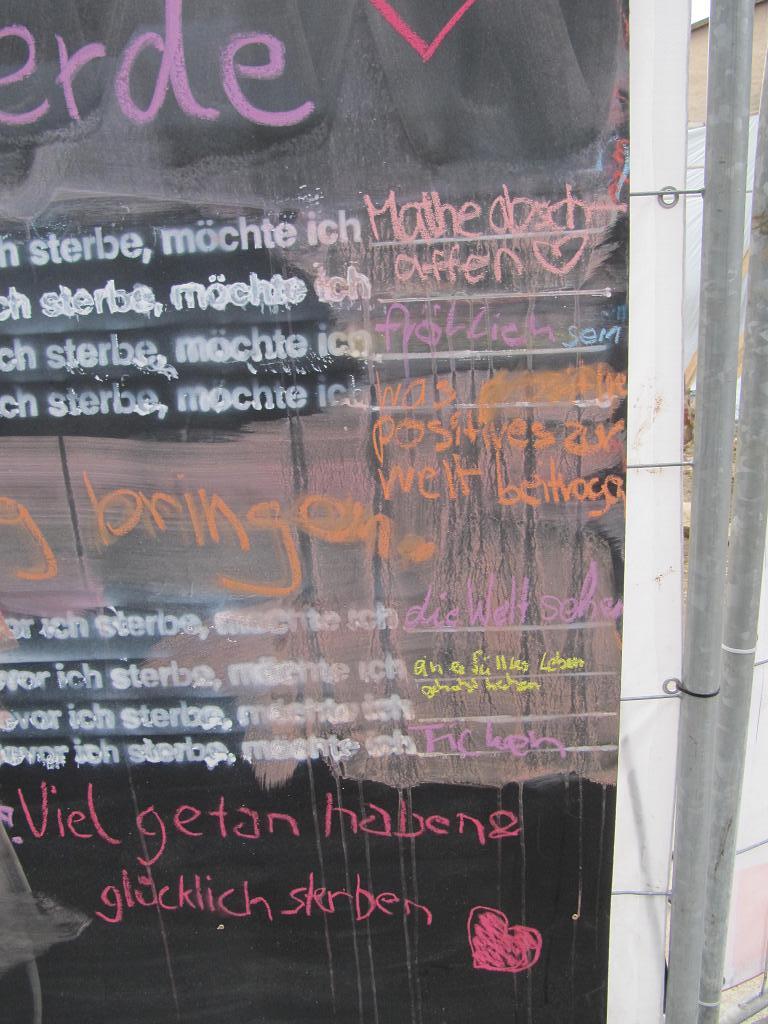 erde
h sterbe, möchte ich Mathe absch
affen
ch sterbe, möchte ich
ch sterbe, möchte ich fröhlich sein
ch sterbe, möchte ich was
positives zur
welt beitragen
g bringen.
or ich sterbe, möchte ich die Welt sehen
vor ich sterbe, möchte ich ein erfülltes Leben
gehabt haben
evor ich sterbe, möchte ich
evor ich sterbe, möchte ich Ficken
Viel getan haben &
glücklich sterben